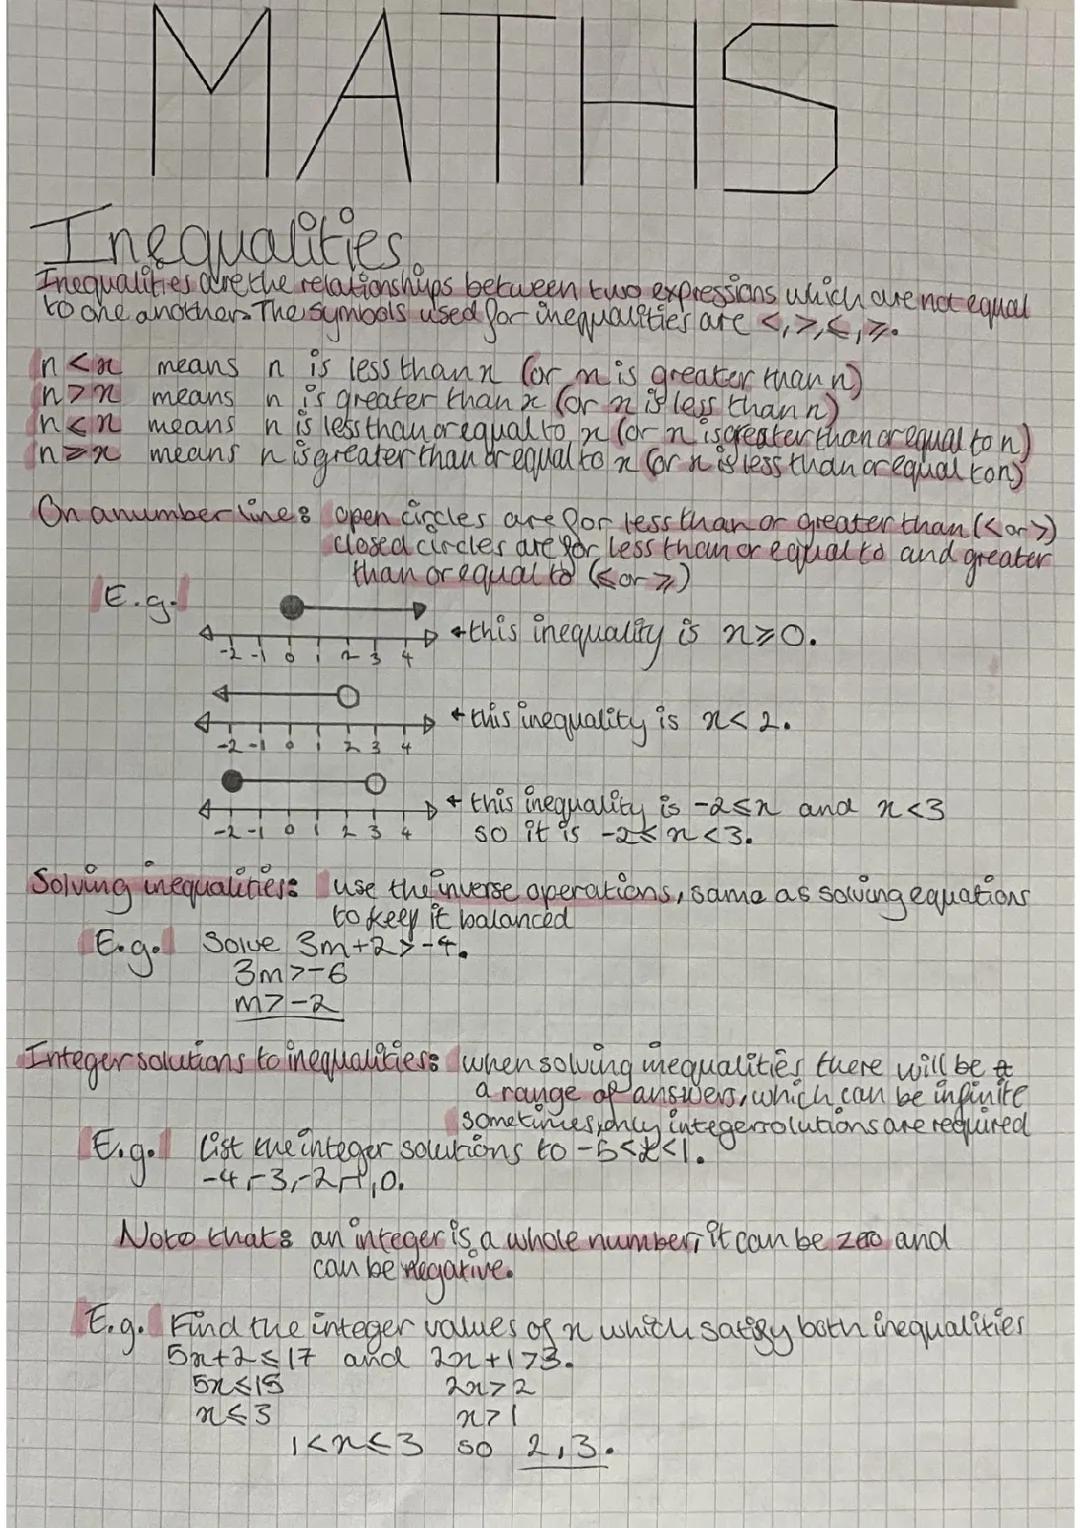 MATHS
Inequalities
Inequalities are the relationships between two expressions which are not equal
to one another. The symbols used for inequalities are <, >, ⩽, ⩾.
n < x means n is less than x (or x is greater than n)
n > x means n is greater than x (or x is less than n)
n ⩽ x means n is less than or equal to x (or x is greater than or equal to n)
n ⩾ x means n is greater than or equal to x (or x is less than or equal to n)
On a number line: open circles are for less than or greater than (< or >)
closed circles are for less than or equal to and greater
than or equal to (⩽ or ⩾)
E.g.
←this inequality is x ⩾ 0.
-2 -1 0 1 2 3 4
←this inequality is x < 2.
-2 -1 0 1 2 3 4
←this inequality is -2 ⩽ x and x < 3
-2 -1 0 1 2 3 4 so it is -2 ⩽ x < 3.
Solving inequalities: use the inverse operations, same as solving equations
to keep it balanced
E.g. Solve 3m+2 > -4.
3m > -6
m > -2
Integer solutions to inequalities: when solving inequalities there will be
a range of answers, which can be infinite
sometimes, only integer solutions are required
E.g. List the integer solutions to -5 < x < 1.
-4, -3, -2, -1, 0.
Note that: an integer is a whole number, it can be zero and
can be negative.
E.g. Find the integer values of x which satisfy both inequalities
5x+2 ⩽ 17 and 2x+1 > 3.
5x ⩽ 15 2x > 2
x ⩽ 3 x > 1
1 < x ⩽ 3 so 2, 3.